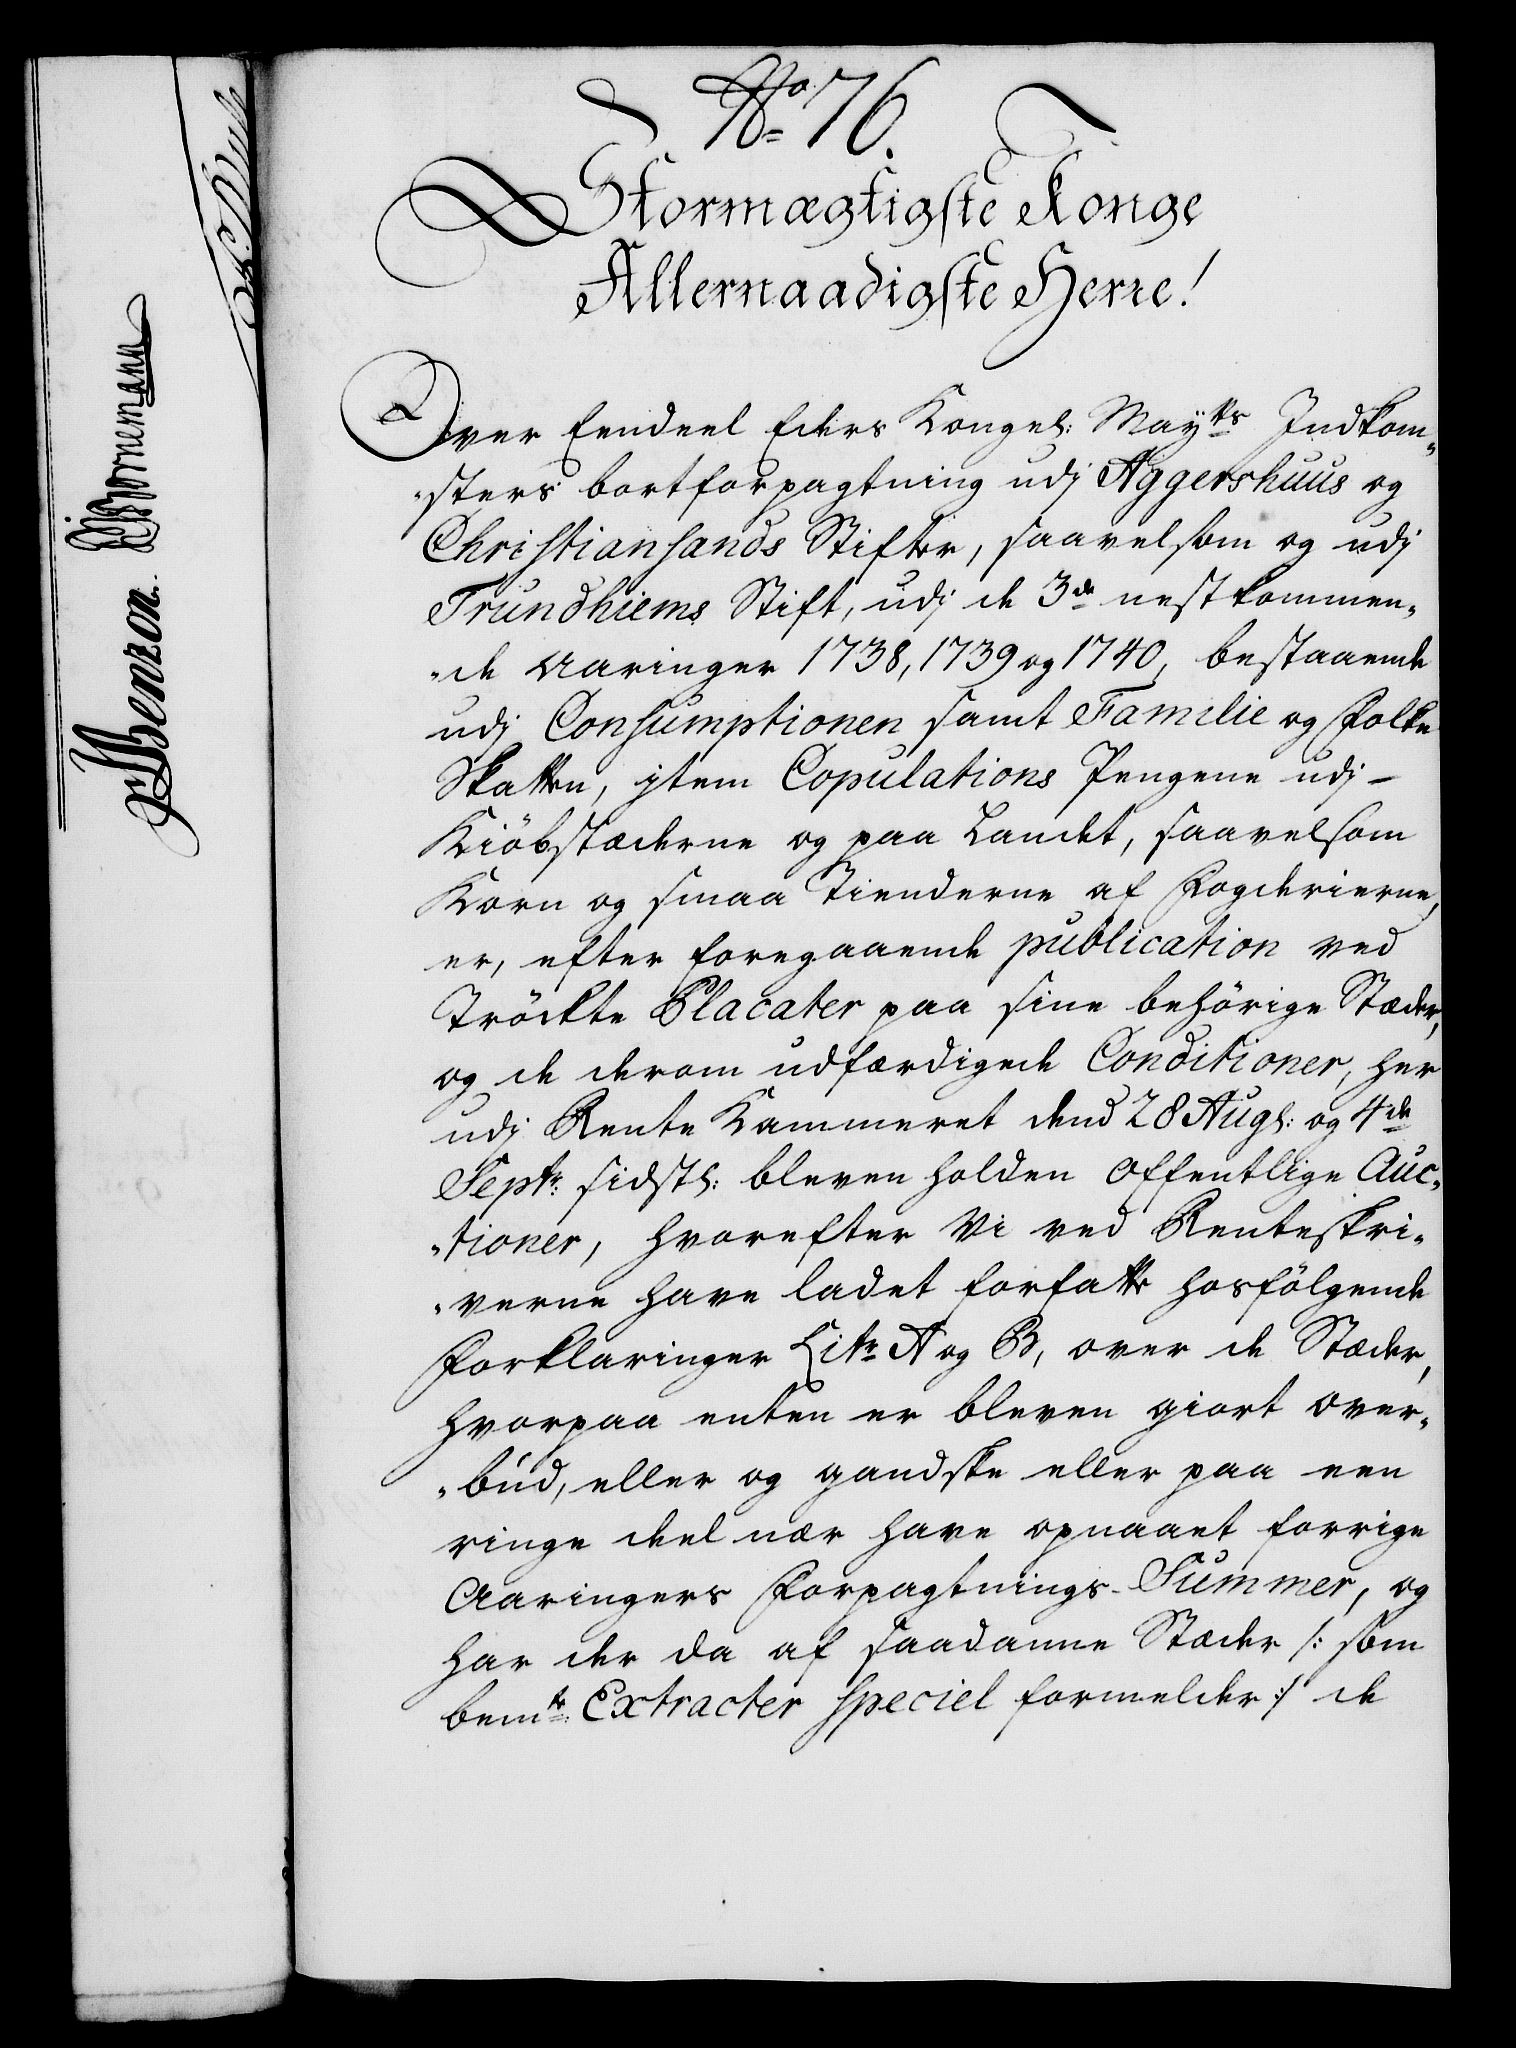 No 76.
Stormægtigste Konge
Allernaadigste Herre!
Over Eendeel Eders Kongel: Mayts Indkom-
-sters bortforpagtning udj Aggershuus og
Christiansands Stifter, saavelsom og udj
Trundhiems Stift, udj de 3de nestkommen-
-de Aaringer 1738, 1739 og 1740, bestaaende
udj Consumptionen samt Familie og Folke
Skatten, jtem Copulations Pengene udj
Kiöbstæderne og paa Landet, saavelsom
Korn og smaa Tienderne af Fogderierne,
er, efter foregaaende publication ved
Tröckte Placater paa sine behörige Stæder,
og de derom udfærdigede Conditioner, her
udj Rente Kammeret dend 28 Augl: og 4de
Septr: sidstl: bleven holden offentlige Auc-
-tioner, hvorefter Vi ved Renteskri-
-verne have ladet forfatte hosfölgende
Forklaringer Litr A og B, over de Stæder,
hvorpaa enten er bleven giort over-
-bud, eller og gandske eller paa een
ringe deel nær have opnaaet forrige
Aaringers Forpagtnings-Summer, og
har der da af saadanne Stæder /: som
bemte: Extracter speciel formelder :/ de
Benzon.
Bornemann